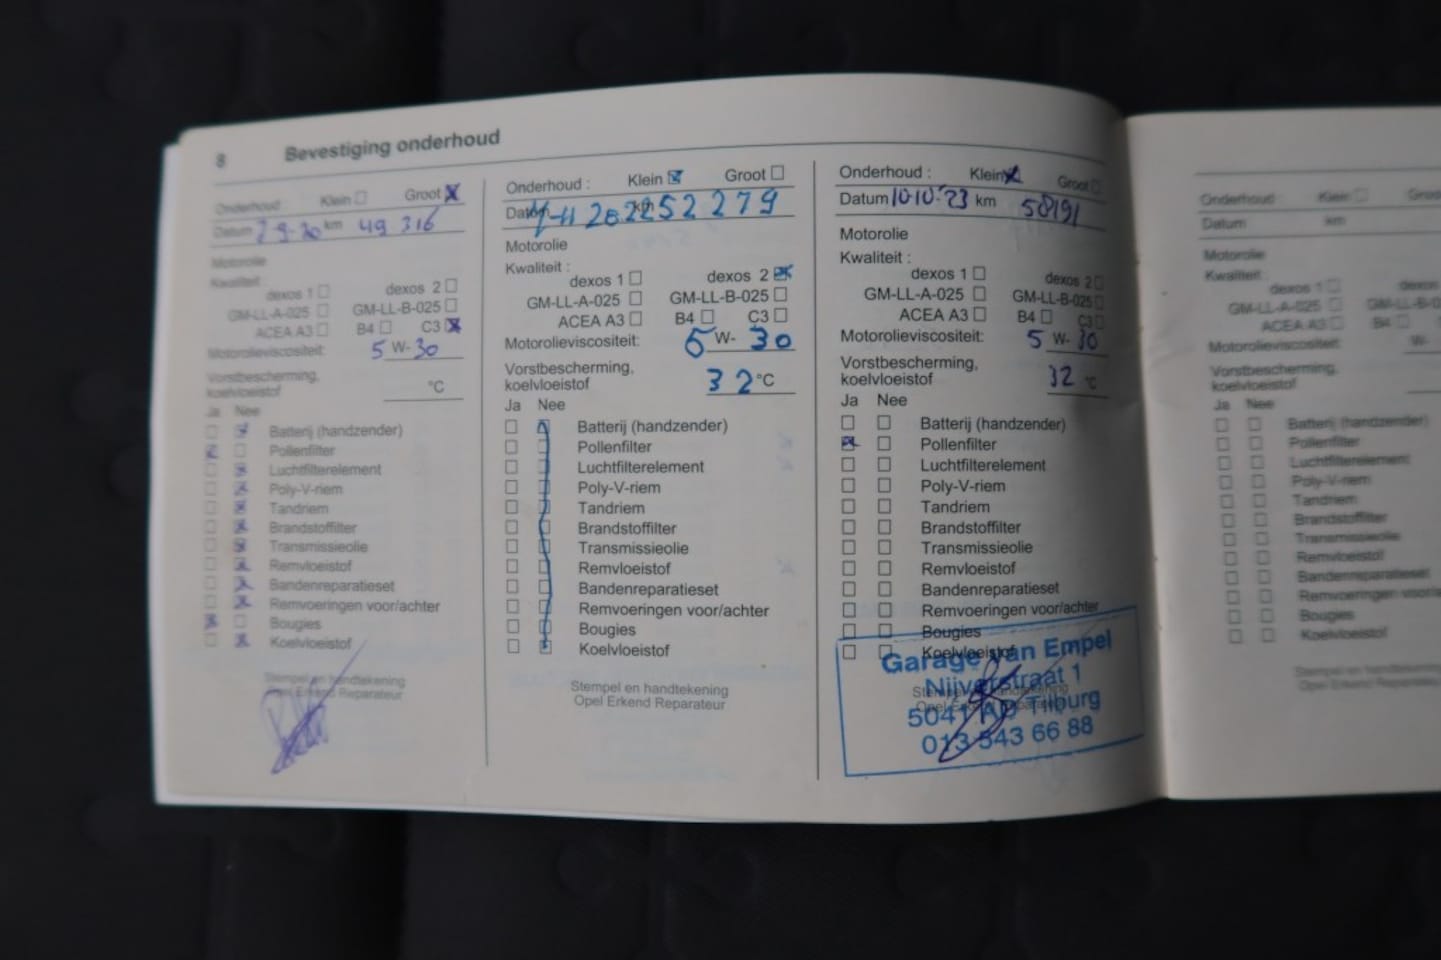 8 Bevestiging onderhoud
Onderhoud : Klein Groot
Datum 2 9-20 km 49 316
Motorolie
Kwaliteit :
dexos 1 dexos 2
GM-LL-A-025 GM-LL-B-025
ACEA A3 B4 C3
Motorolieviscositeit: 5 W- 30
Vorstbescherming,
koelvloeistof °C
Ja Nee
Batterij (handzender)
Pollenfilter
Luchtfilterelement
Poly-V-riem
Tandriem
Brandstoffilter
Transmissieolie
Remvloeistof
Bandenreparatieset
Remvoeringen voor/achter
Bougies
Koelvloeistof
Stempel en handtekening
Opel Erkend Reparateur
Onderhoud : Klein Groot
Datum km 52 279
Motorolie
Kwaliteit :
dexos 1 dexos 2
GM-LL-A-025 GM-LL-B-025
ACEA A3 B4 C3
Motorolieviscositeit: 5 W- 30
Vorstbescherming,
koelvloeistof 32 °C
Ja Nee
Batterij (handzender)
Pollenfilter
Luchtfilterelement
Poly-V-riem
Tandriem
Brandstoffilter
Transmissieolie
Remvloeistof
Bandenreparatieset
Remvoeringen voor/achter
Bougies
Koelvloeistof
Stempel en handtekening
Opel Erkend Reparateur
Onderhoud : Klein Groot
Datum 10-10-'23 km 58191
Motorolie
Kwaliteit :
dexos 1 dexos 2
GM-LL-A-025 GM-LL-B-025
ACEA A3 B4 C3
Motorolieviscositeit: 5 W- 30
Vorstbescherming,
koelvloeistof 32 °C
Ja Nee
Batterij (handzender)
Pollenfilter
Luchtfilterelement
Poly-V-riem
Tandriem
Brandstoffilter
Transmissieolie
Remvloeistof
Bandenreparatieset
Remvoeringen voor/achter
Bougies
Koelvloeistof
Garage van Empel
Nijverstraat 1
5041 Tilburg
013 543 66 88
Onderhoud : Klein
Datum km
Motorolie
Kwaliteit :
dexos 1
GM-LL-A-025
ACEA A3 B4
Motorolieviscositeit: W-
Vorstbescherming,
koelvloeistof
Ja Nee
Batterij (handzender)
Pollenfilter
Luchtfilterelement
Poly-V-riem
Tandriem
Brandstoffilter
Transmissieolie
Remvloeistof
Bandenreparatieset
Remvoeringen
Bougies
Koelvloeistof
Stempel en handtekening
Opel Erkend